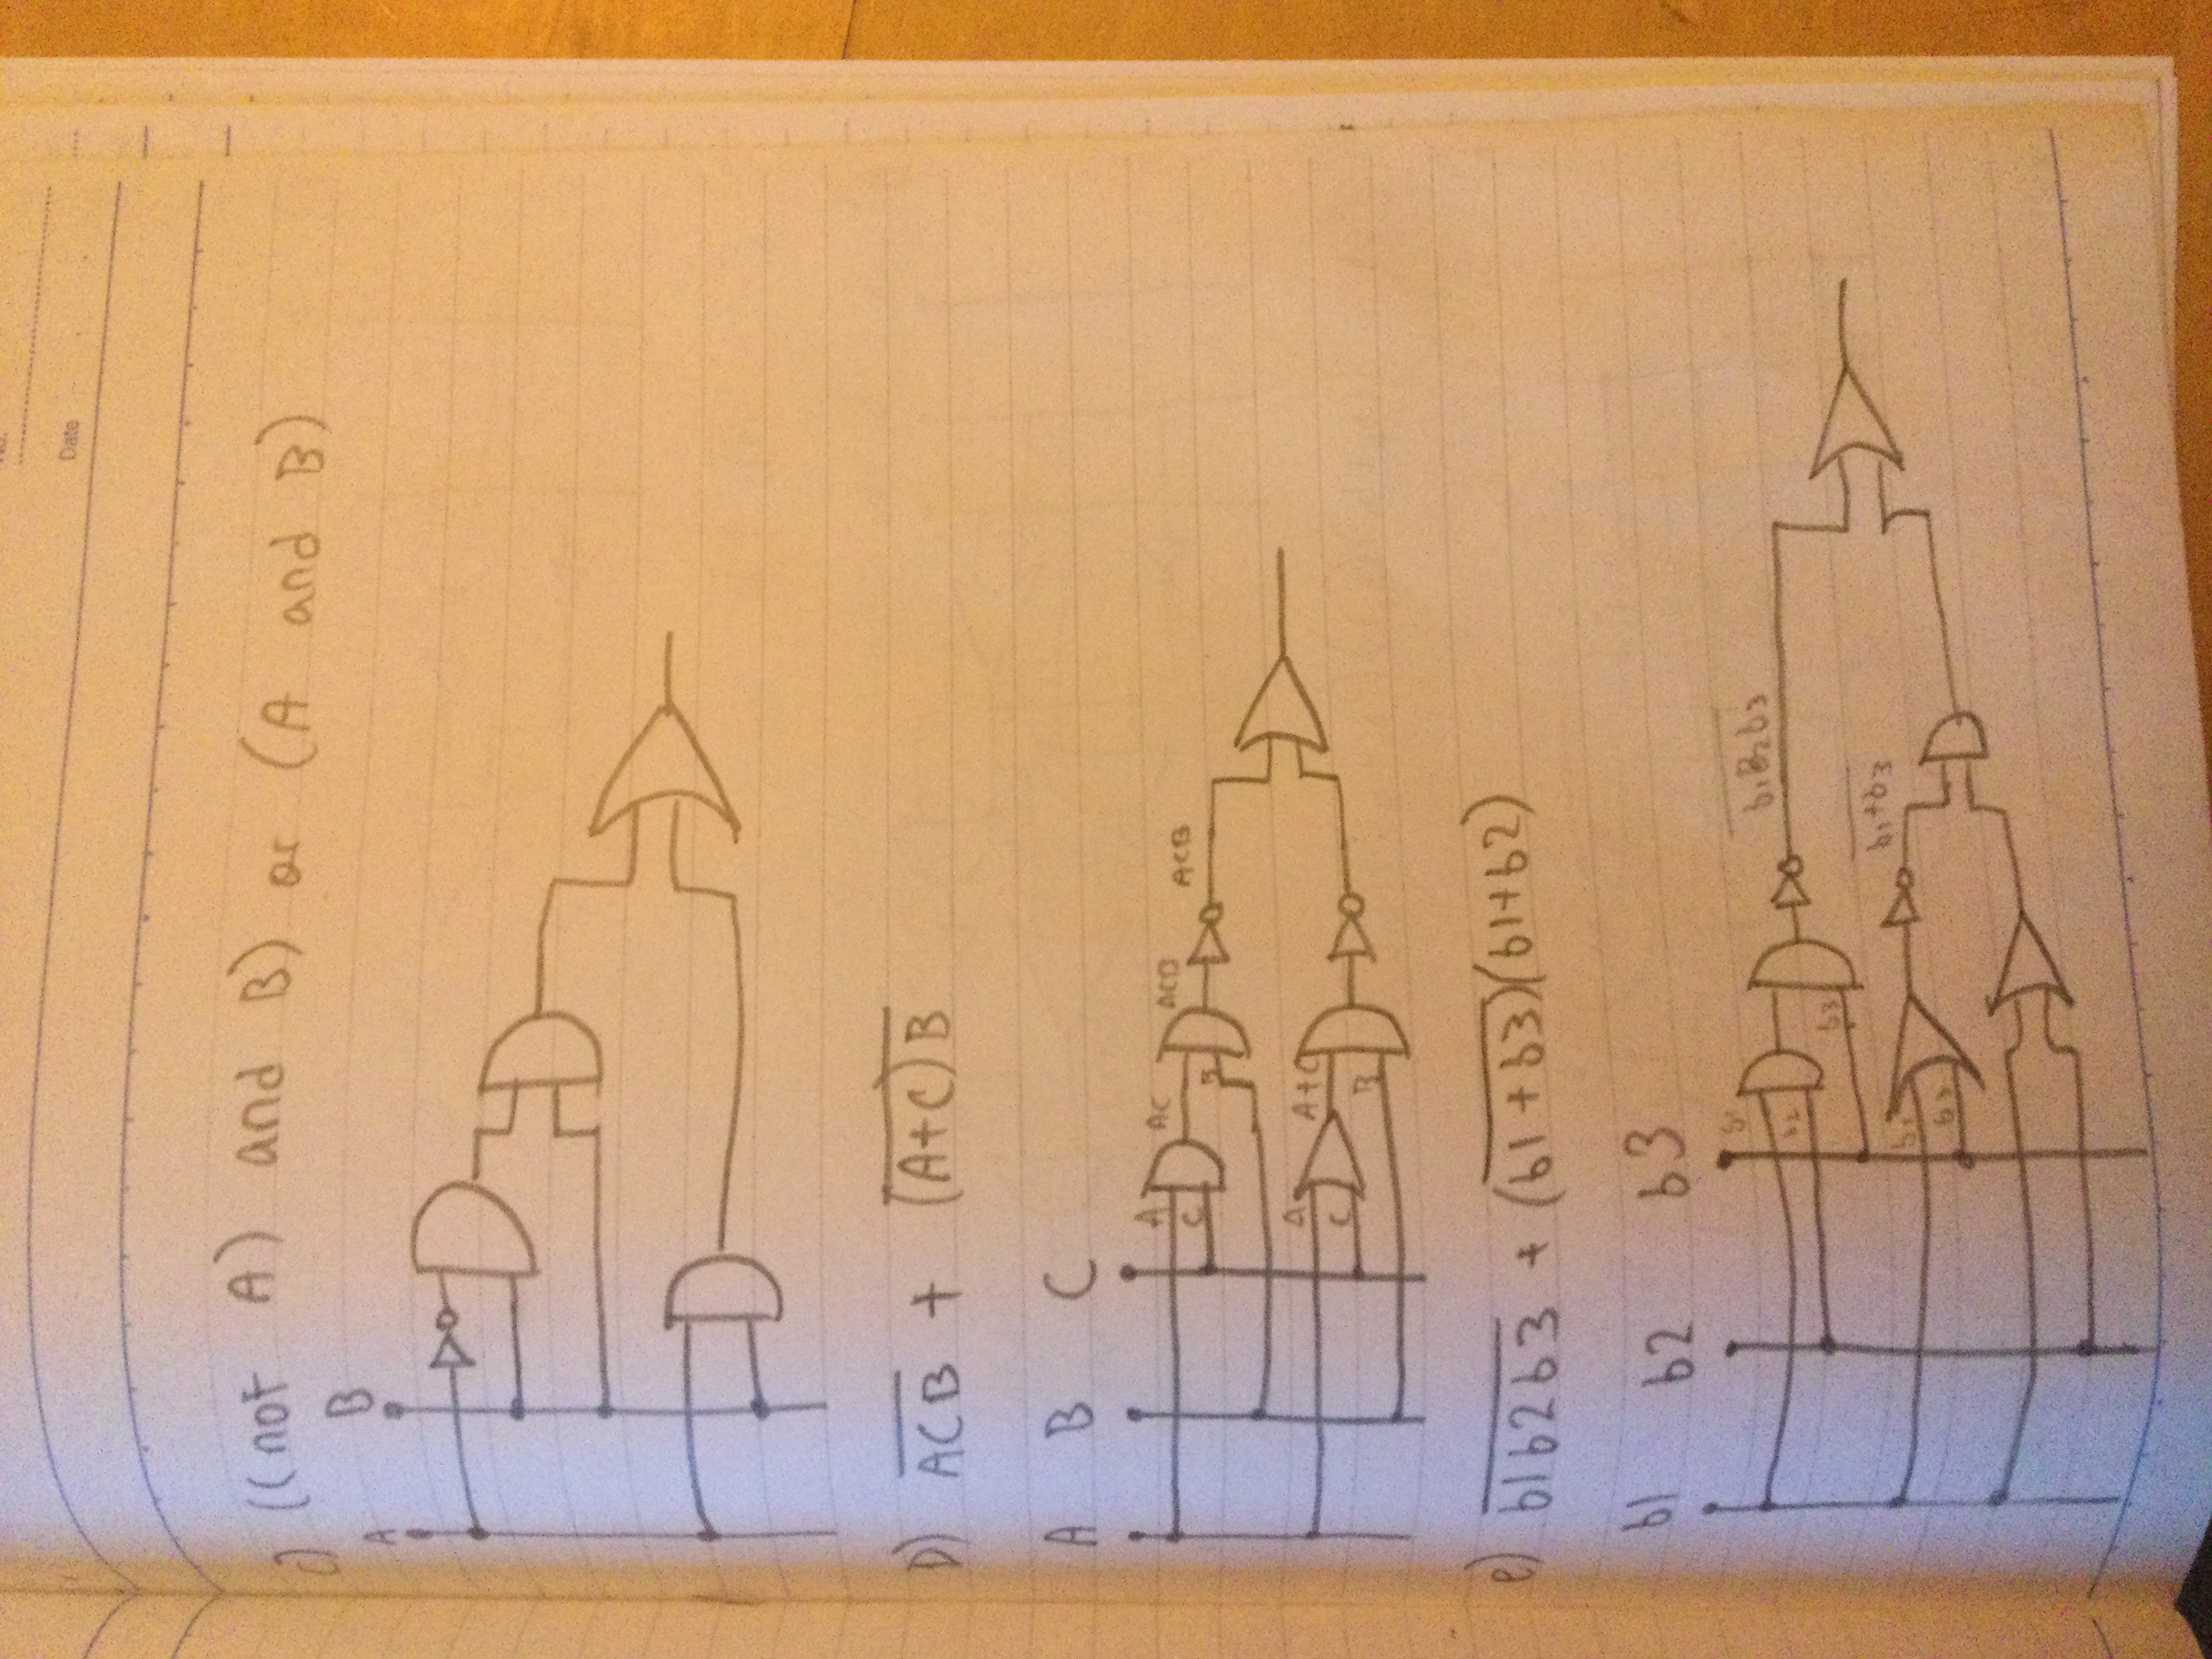 No.
Date
c) ((not A) and B) or (A and B)
A B
D) A̅C̅B̅ + (̅A̅+̅C̅)̅B̅
A B C
A AC ACB ACB
C B
A A+C
C B
e) b̅1̅b̅2̅b̅3̅ + (b̅1̅+̅b̅3̅)(b1+b2)
b1 b2 b3
b1 b̅₁̅B̅₂̅b̅₃̅
b2
b3
b̅₁̅+̅b̅₃̅
b1
b3